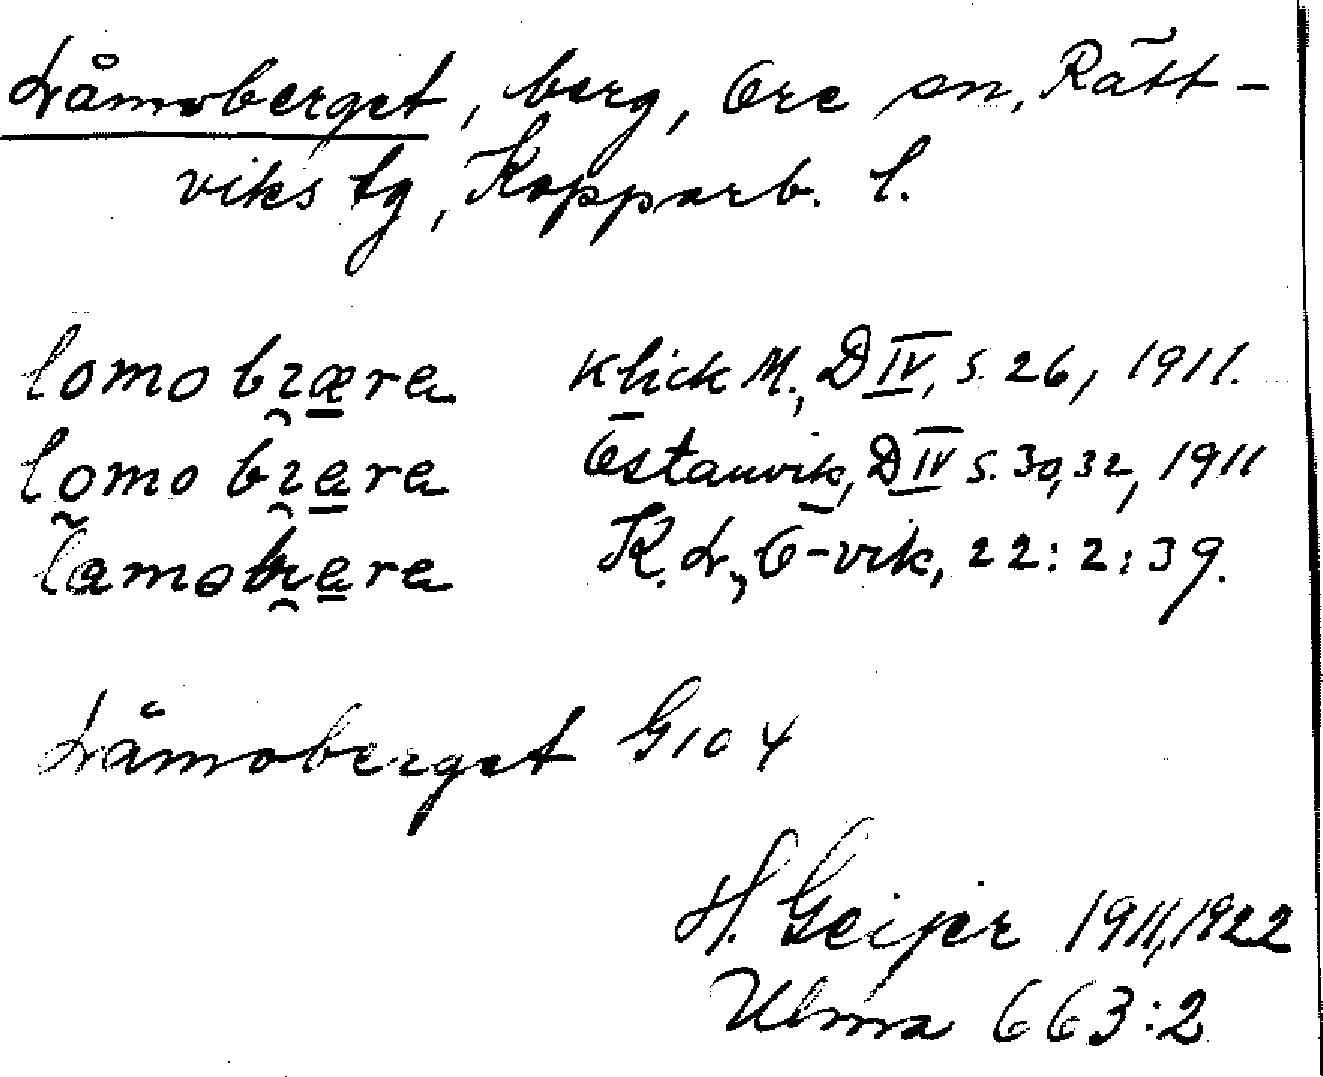 Låmoberget, berg, Ore sn, Rätt-
viks tg, Kopparb. l.
lomobɿæra Klick M., D IV, s. 26, 1911.
lomobɿara Östanvik, D IV s. 30, 32, 1911
lamobɿara K. L., Ö-vik, 22:2:39.
Låmoberget G 104
H. Geijer 1911, 1922
Ulma 663:2